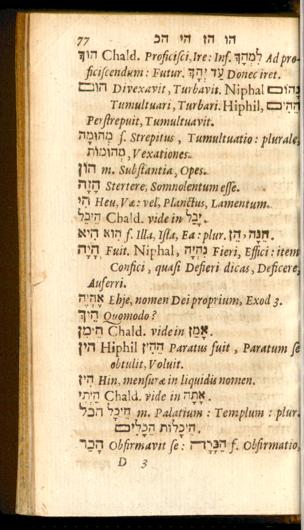 77 הו הז הי הכ
הוּךְ Chald. Proficisci, Ire: Inf. לִמְהָךְ Ad pro-
ficiscendum: Futur. עַד יְהָךְ Donec iret.
הום Divexavit, Turbavit. Niphal נָהוֹם
Tumultuari, Turbari: Hiphil, הֵהִים
Perstrepuit, Tumultuavit.
מְהוּמָה f. Strepitus, Tumultuatio: plurale,
מְהוּמוֹת, Vexationes.
הוֹן m. Substantia, Opes.
הָזָה Stertere, Somnolentum esse.
הִי Heu, Væ: vel, Planctus, Lamentum.
הֵיבֵל Chald. vide in יָבַל.
הוּא הִיא f. Illa, Ista, Ea: plur. הֵן, הֵנָּה.
הָיָה Fuit. Niphal, נִהְיָה Fieri, Effici: item
Confici, quasi Defieri dicas, Deficere,
Auferri.
אֶהְיֶה Ehje, nomen Dei proprium, Exod 3.
הֵיךְ Quomodo?
הֵימִן Chald. vide in אָמַן.
הין Hiphil הֵהִין Paratus fuit, Paratum se
obtulit, Voluit.
הִין Hin. mensuræ in liquidis nomen.
הֵיתִי Chald. vide in אָתָה.
הכל הֵיכָל m. Palatium: Templum: plur.
הֵיכָלוֹת הֵכָלִים.
הָכַר Obfirmavit se: הַכָּרָה f. Obfirmatio,
D 3